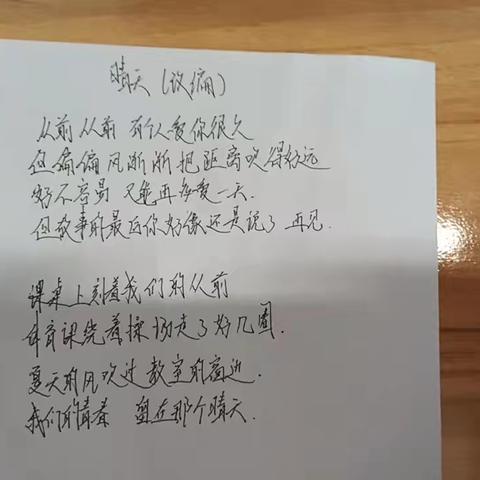 晴天(改编)
从前从前 有个人爱你很久
但偏偏风渐渐把距离吹得好远
好不容易 又能再多爱一天.
但故事的最后你好像还是说了 再见.
课桌上刻着我们的从前
体育课绕着操场走了好几圈.
夏天的风吹过教室的窗边.
我们的青春 留在那个晴天.